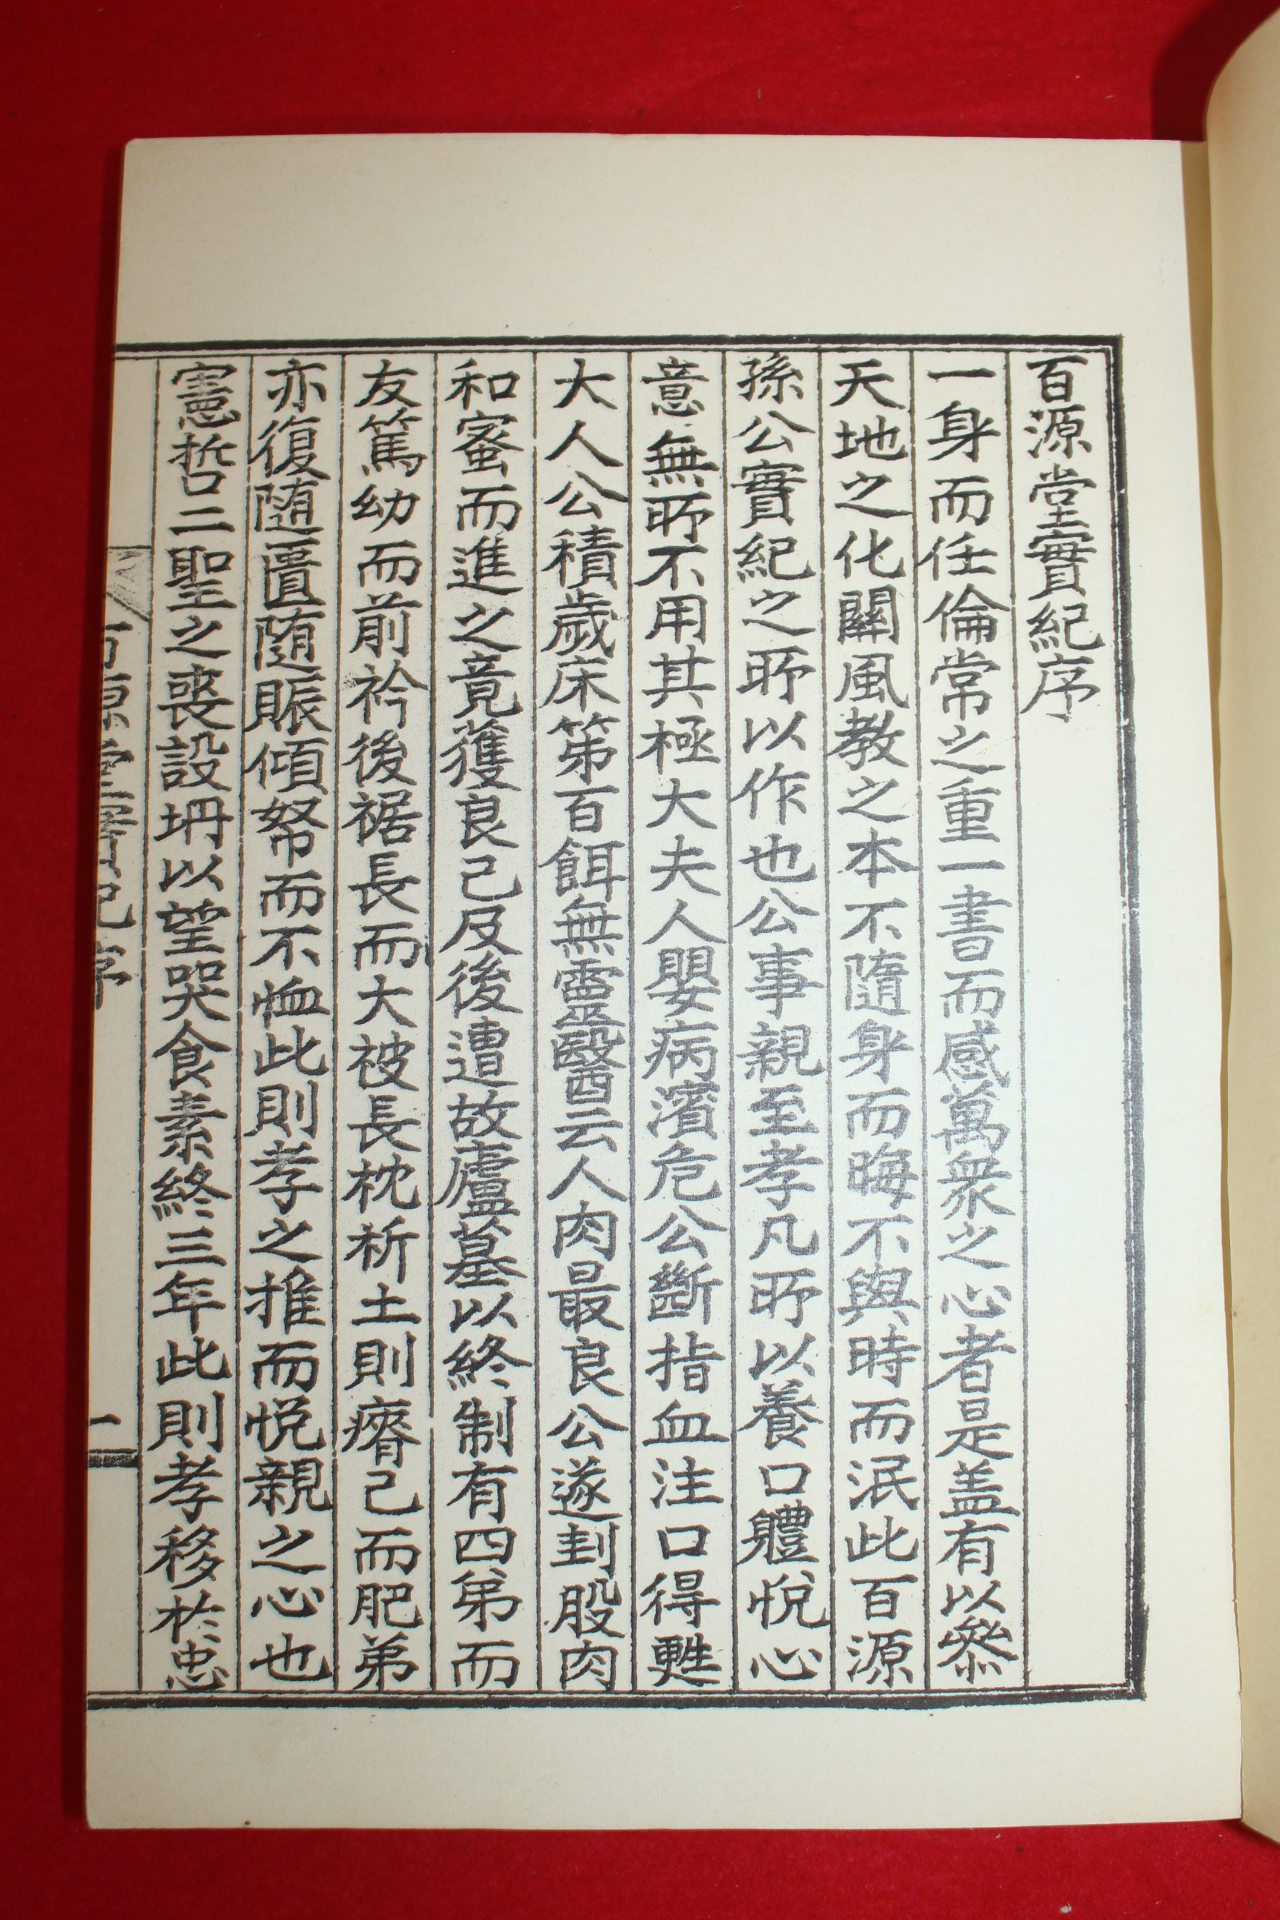 百源堂實紀序
一身而任倫常之重一書而感萬衆之心者是盖有以叅
天地之化關風教之本不隨身而晦不與時而泯此百源
孫公實紀之所以作也公事親至孝凡所以養口軆悅心
意無所不用其極大夫人嬰病濱危公斷指血注口得甦
大人公積歲床笫百餌無靈醫云人肉最良公遂刲股肉
和蜜而進之竟獲良已及後遭故廬墓以終制有四弟而
友篤幼而前衿後裾長而大被長枕析土則瘠己而肥弟
亦復隨匱隨賑傾帑而不恤此則孝之推而悅親之心也
憲哲二聖之喪設坍以望哭食素終三年此則孝移於忠
百源堂實紀序
一